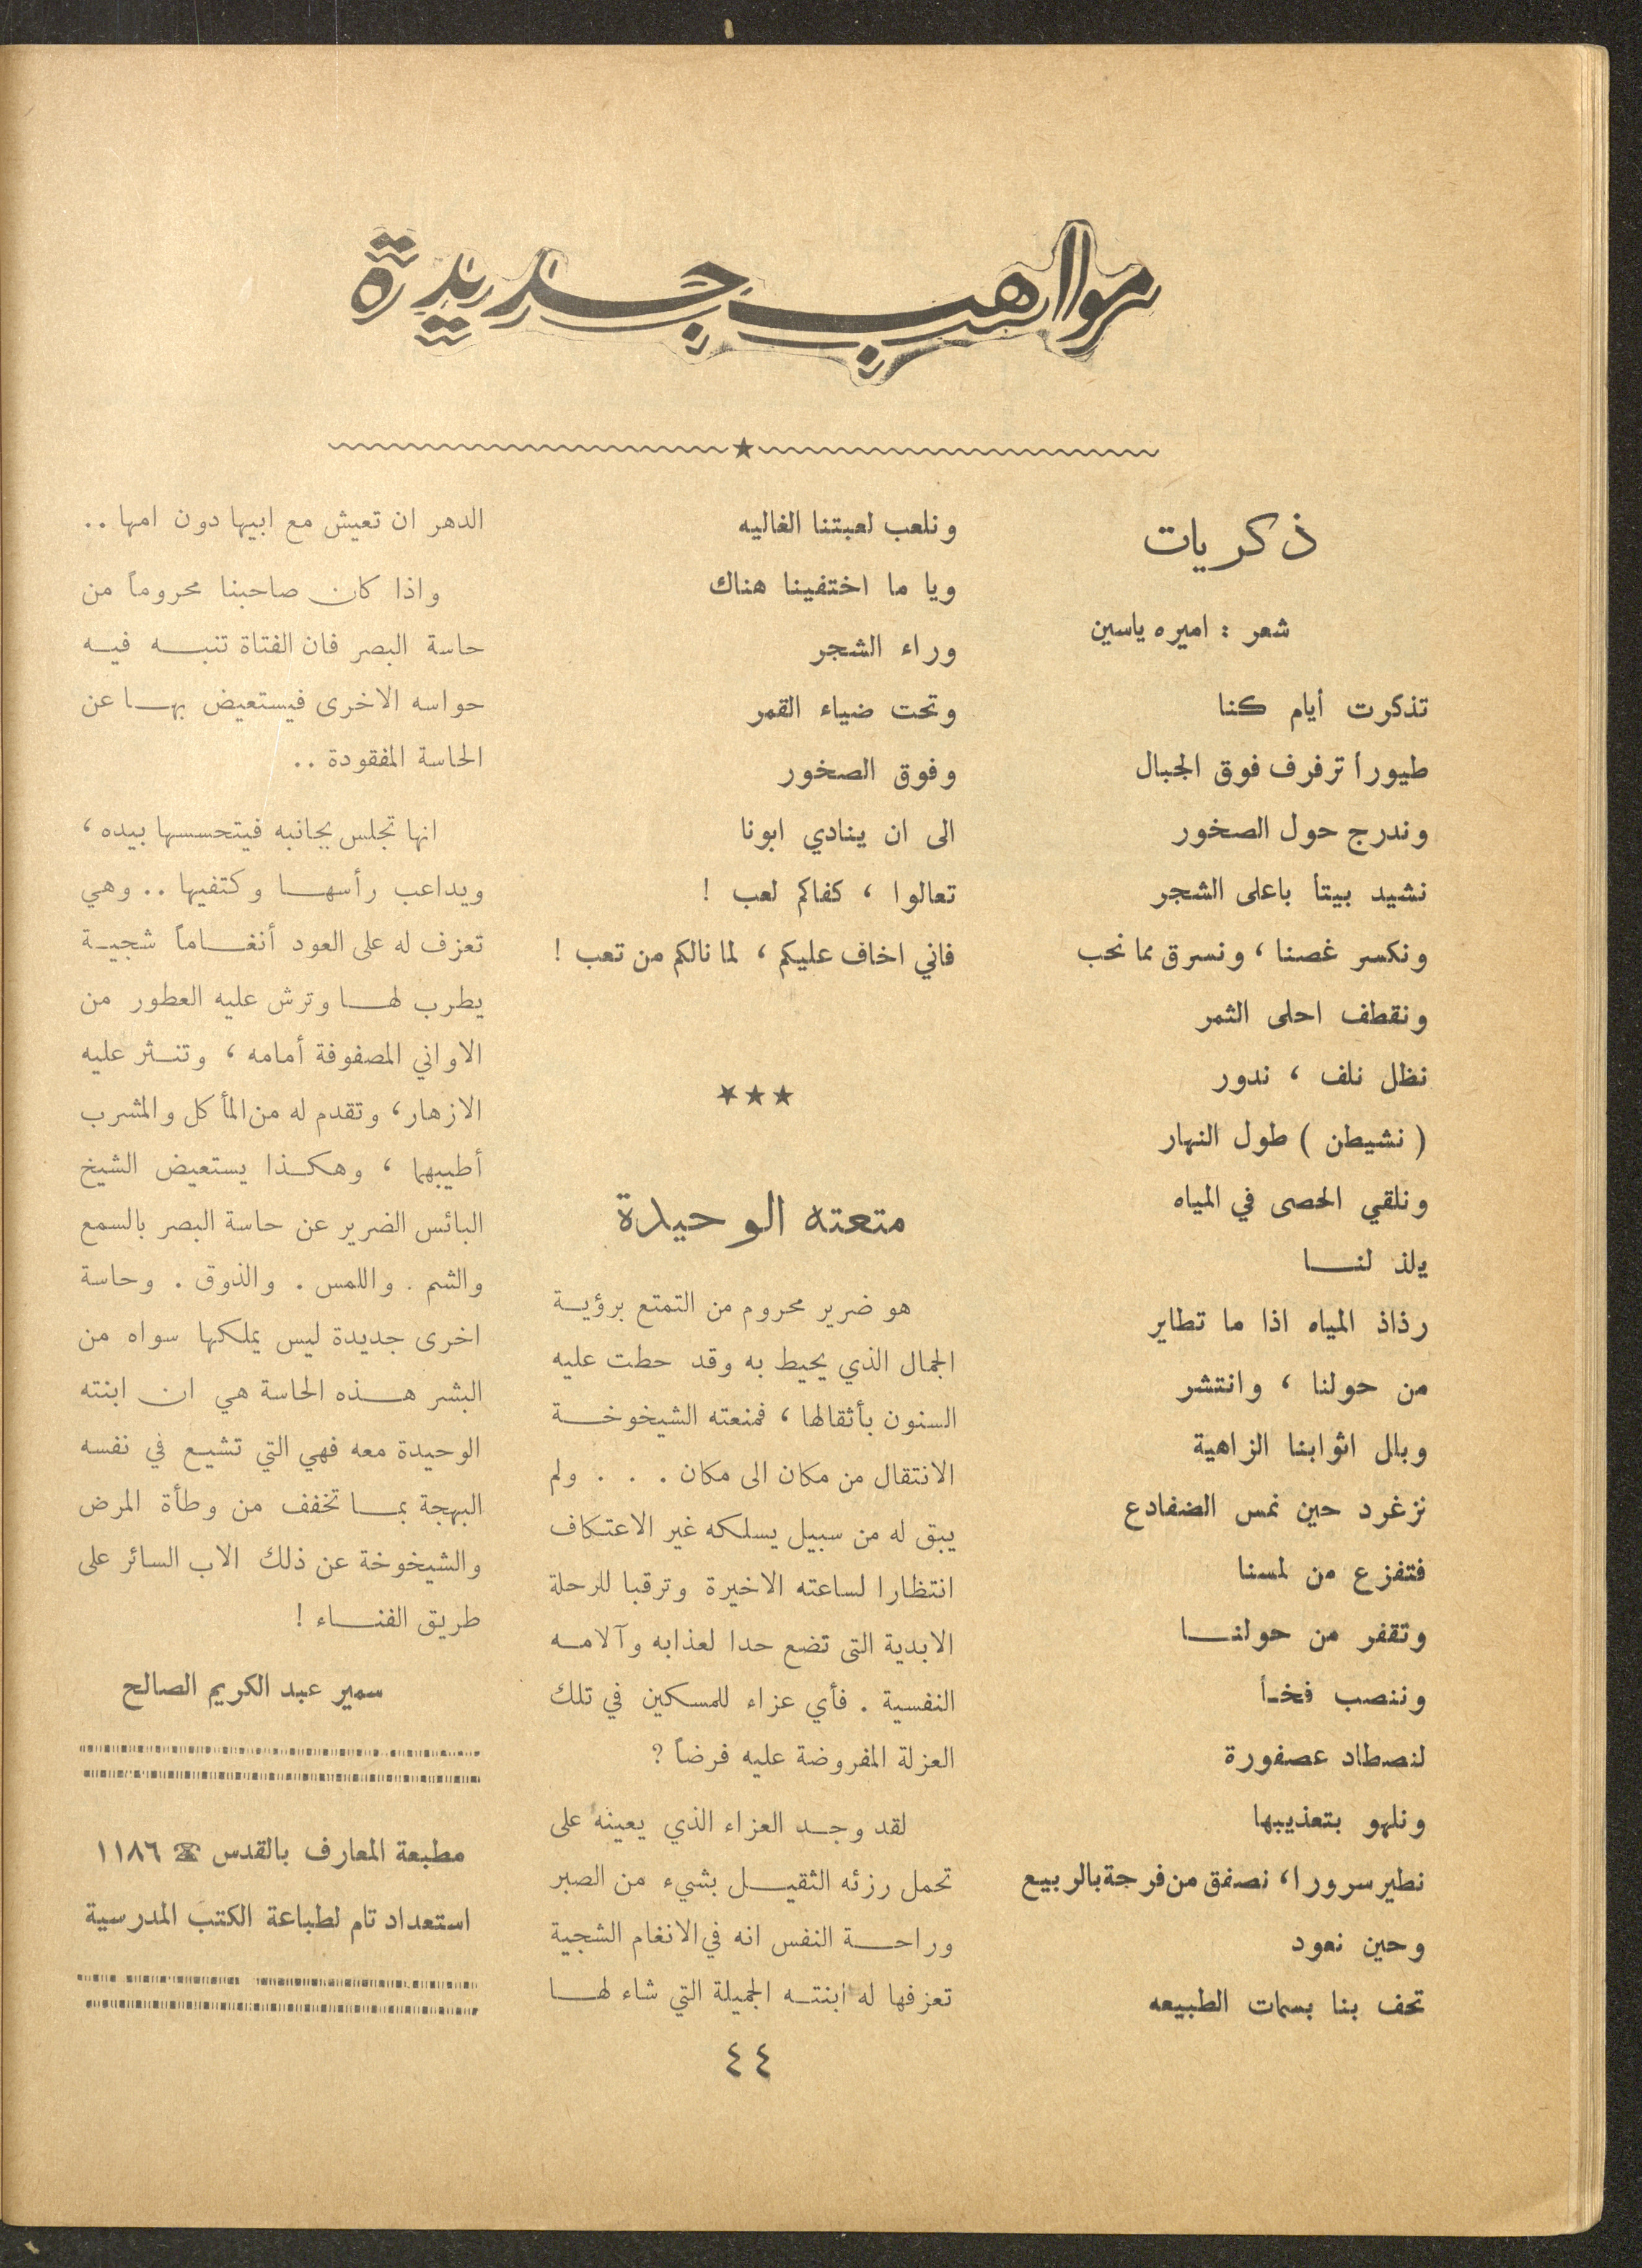 مواهب جديدة
ذكريات
شعر : اميره ياسين
تذكرت أيام كنا
طيوراً ترفرف فوق الجبال
وندرج حول الصخور
نشيد بيتاً باعلى الشجر
ونكسر غصنا ، ونسرق مما نحب
ونقطف احلى الثمر
نظل نلف ، ندور
( نشيطن ) طول النهار
ونلقي الحصى في المياه
يلذ لنا
رذاذ المياه اذا ما تطاير
من حولنا ، وانتشر
وبلل اثوابنا الزاهية
نزغرد حين نمس الضفادع
فتفزع من لمسنا
وتقفر من حولنا
وننصب فخاً
لنصطاد عصفورة
ونلهو بتعذيبها
نطير سرورا، نصفق من فرحة بالربيع
وحين نعود
تحف بنا بسمات الطبيعه
ونلعب لعبتنا الغاليه
ويا ما اختفينا هناك
وراء الشجر
وتحت ضياء القمر
وفوق الصخور
الى ان ينادي ابونا
تعالوا ، كفاكم لعب !
فاني اخاف عليكم ، لما نالكم من تعب !
★★★
متعته الوحيدة
هو ضرير محروم من التمتع برؤية
الجمال الذي يحيط به وقد حطت عليه
السنون بأثقالها ، فمنعته الشيخوخة
الانتقال من مكان الى مكان . . . ولم
يبق له من سبيل يسلكه غير الاعتكاف
انتظارا لساعته الاخيرة وترقبا للرحلة
الابدية التى تضع حدا لعذابه وآلامه
النفسية . فأي عزاء للمسكين في تلك
العزلة المفروضة عليه فرضاً ؟
لقد وجد العزاء الذي يعينه على
تحمل رزئه الثقيل بشيء من الصبر
وراحة النفس انه في الانغام الشجية
تعزفها له ابنته الجميلة التي شاء لها
الدهر ان تعيش مع ابيها دون امها . .
واذا كان صاحبنا محروماً من
حاسة البصر فان الفتاة تنبه فيه
حواسه الاخرى فيستعيض بها عن
الحاسة المفقودة . .
انها تجلس بجانبه فيتحسسها بيده ،
ويداعب رأسها وكتفيها . . وهي
تعزف له على العود أنغاماً شجية
يطرب لها وترش عليه العطور من
الاواني المصفوفة أمامه ، وتنثر عليه
الازهار ، وتقدم له من المأكل والمشرب
أطيبهما ، وهكذا يستعيض الشيخ
البائس الضرير عن حاسة البصر بالسمع
والشم . واللمس . والذوق . وحاسة
اخرى جديدة ليس يملكها سواه من
البشر هذه الحاسة هي ان ابنته
الوحيدة معه فهي التي تشيع في نفسه
البهجة بما تخفف من وطأة المرض
والشيخوخة عن ذلك الاب السائر على
طريق الفناء !
سمير عبد الكريم الصالح
مطبعة المعارف بالقدس ☎ ١١٨٦
استعداد تام لطباعة الكتب المدرسية
٤٤